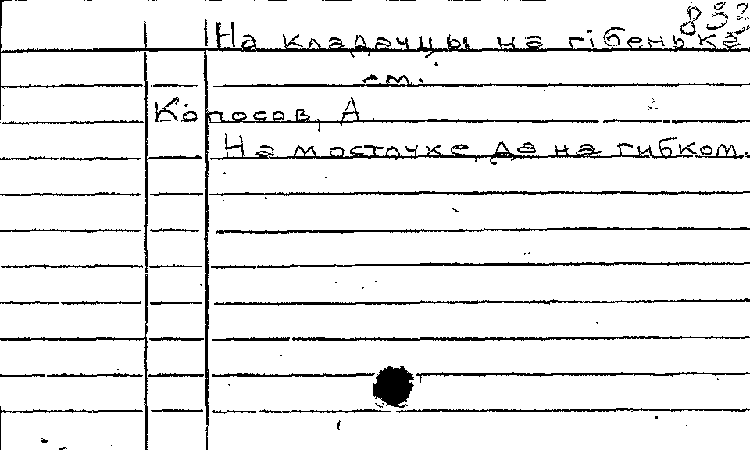 833
На кладачцы на гібенька
см.
Колосов, А
На мосточке, да на гибком.